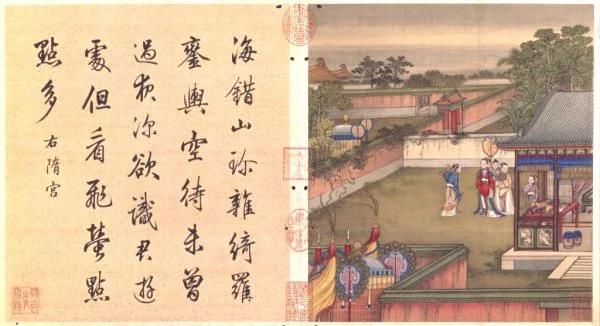 海錯山珍雜綺羅
鑾輿空待未曾
過夜深欲識君遊
處但看飛螢點
點多
右隋宮